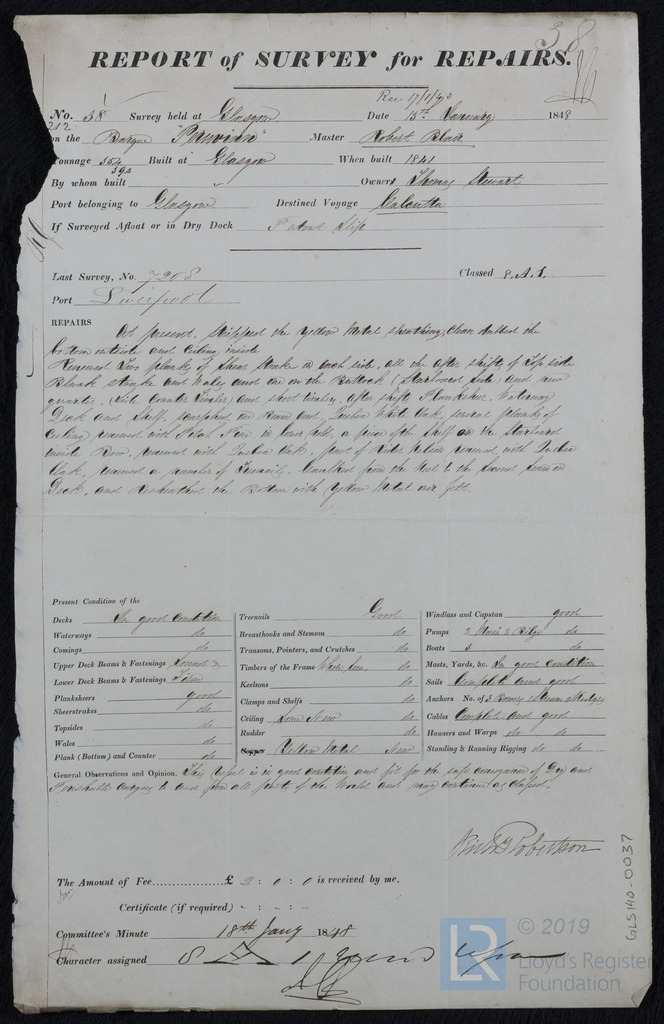 38
REPORT of SURVEY for REPAIRS.
Rec 17/1/48
No. 38 Survey held at Glasgow Date 15th January 1848
212
on the Barque "Peruvian" Master Robert Blair
Tonnage 354 Built at Glasgow When built 1841
394
By whom built Owner Thomas Stewart
Port belonging to Glasgow Destined Voyage Calcutta
If Surveyed Afloat or in Dry Dock Patent Slip
Last Survey, No. 7208 Classed 8.A.1.
Port Liverpool
REPAIRS
At present, stripped the Yellow Metal sheathing, clean the
bottom outside and Ceiling inside
Renewed Two planks of Shear Strake on each side, all the after shifts of Top side
Black strake and Wales and one on the Buttock (Starboard side) and
quarter, Counter Timber and short timber, after shift Planksheer, Waterway
Deck and Shelf, on Beam End, Quebec White Oak, several planks of
Ceiling renewed with Pine, in lower hold, a piece of the Shelf on the Starboard
inside Bow, renewed with Quebec Oak, part of renewed with Quebec
Oak, renewed a number of Treenails, Caulked from the Keel to the Second Seam on
Deck, and Resheathed the Bottom with Yellow Metal over felt.
Present Condition of the
Decks In good condition
Waterways do
Comings do
Upper Deck Beams & Fastenings Sound &
Lower Deck Beams & Fastenings Firm
Plansheers good
Sheerstrakes do
Topsides do
Wales do
Plank (Bottom) and Counter do
Treenails Good
Breasthooks and Stemson do
Transoms, Pointers, and Crutches do
Timbers of the Frame Where seen do
Keelsons do
Clamps and Shelfs do
Ceiling Some New do
Rudder do
Copper Yellow Metal New
Windlass and Capstan good
Pumps 2 Main 2 Bilge do
Boats 3 do
Masts, Yards, &c. In good condition
Sails Complete and good
Anchors No. of 3 Bowers 1 Stream 2 Kedges
Cables Complete and good
Hawsers and Warps do do
Standing & Running Rigging do do
General Observations and Opinion. This Vessel is in good condition and fit for the safe conveyance of Dry and
Perishable Cargoes to and from all parts of the World and may continue as Classed.
Robertson
The Amount of Fee £ 2 : 0 : 0 is received by me.
Certificate (if required) - : - : -
Committee's Minute 18th Jany 1848
Character assigned 8 A 1
GLS140-0037
LR
© 2019
Lloyd's Register
Foundation